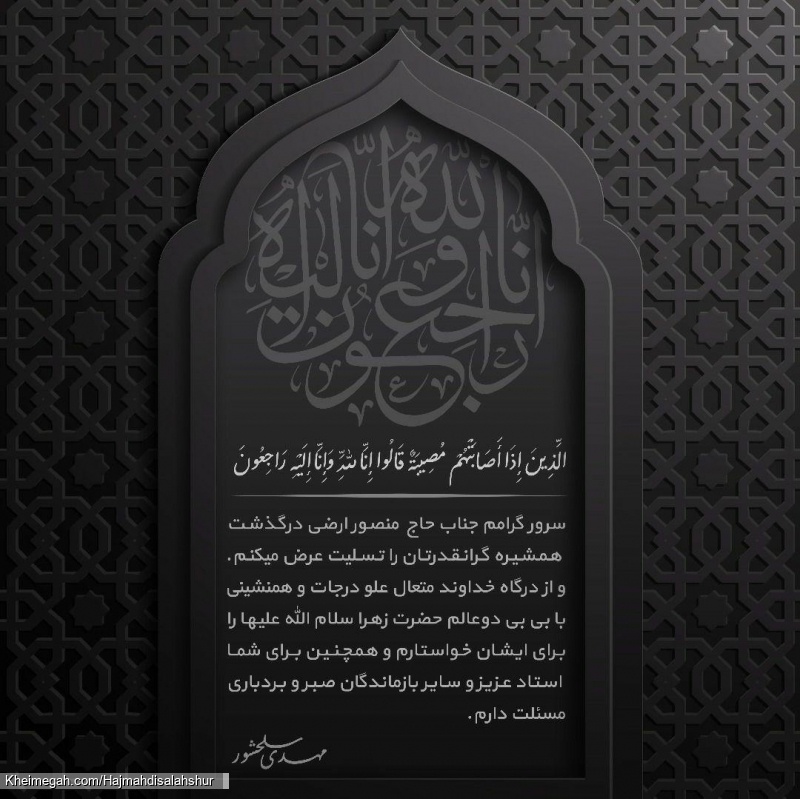 إنا لله وإنا إليه راجعون
الَّذِينَ إِذَا أَصَابَتْهُم مُّصِيبَةٌ قَالُوا إِنَّا لِلَّهِ وَإِنَّا إِلَيْهِ رَاجِعُونَ
سرور گرامم جناب حاج منصور ارضی درگذشت
همشیره گرانقدرتان را تسلیت عرض میکنم.
و از درگاه خداوند متعال علو درجات و همنشینی
با بی بی دوعالم حضرت زهرا سلام الله علیها را
برای ایشان خواستارم و همچنین برای شما
استاد عزیز و سایر بازماندگان صبر و بردباری
مسئلت دارم.
مهدی سلحشور
Kheimegah.com/Hajmahdisalahshur